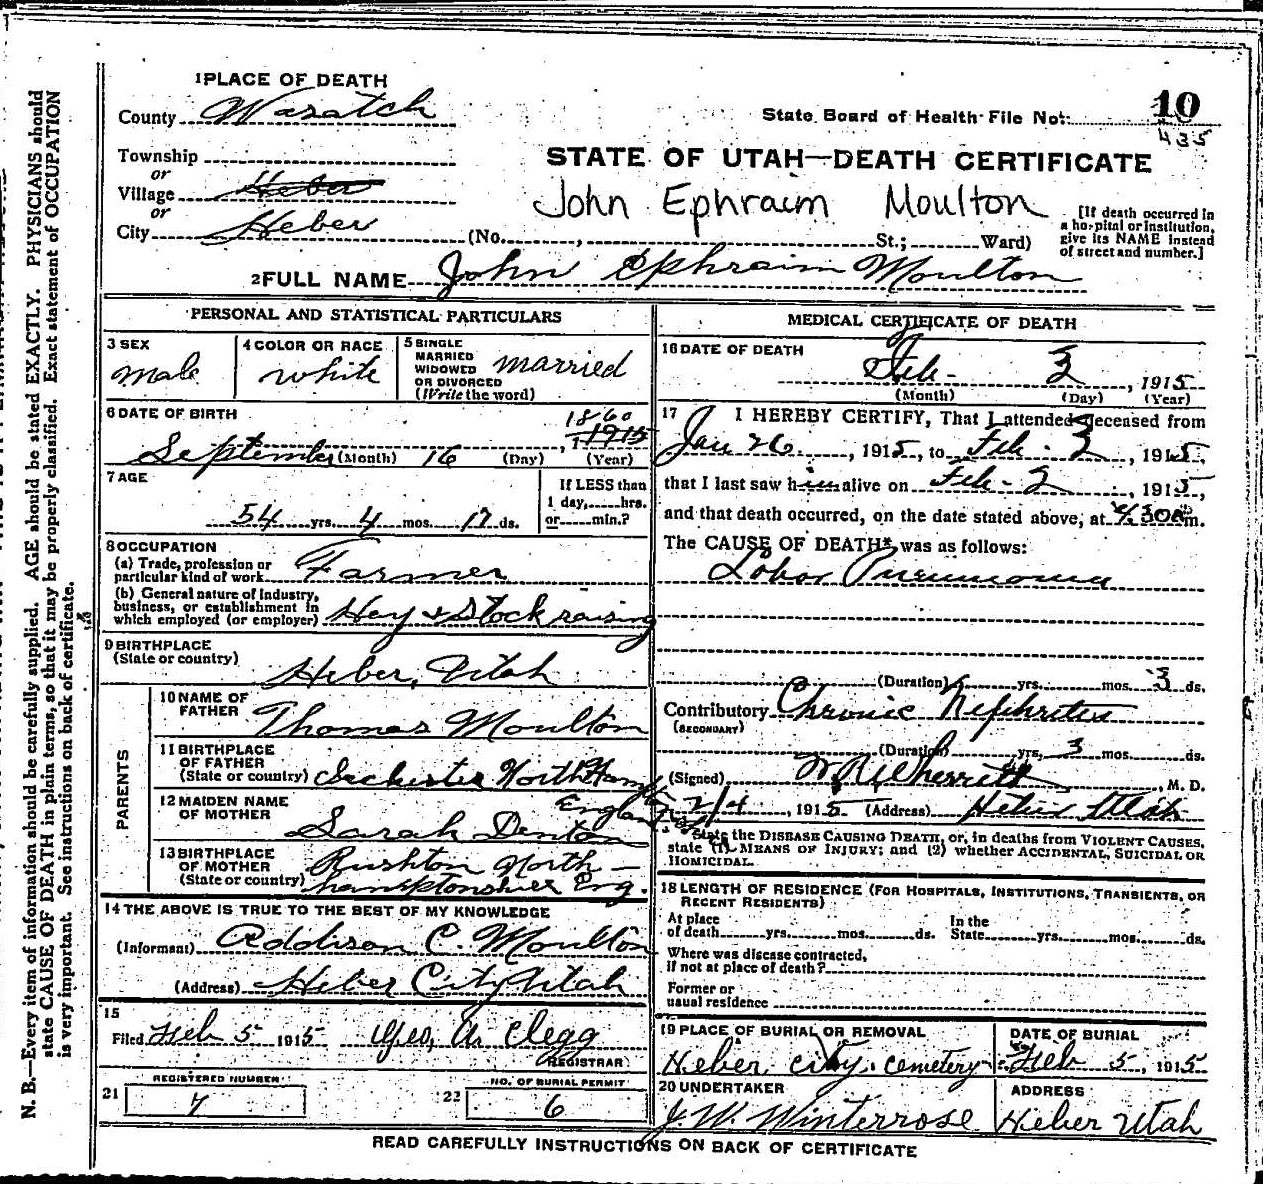 1 PLACE OF DEATH
County Wasatch
State Board of Health File No. 10
435
Township
or
Village Heber
or
City Heber
STATE OF UTAH—DEATH CERTIFICATE
John Ephraim Moulton
(No. , St.; Ward)
[If death occurred in
a hospital or institution,
give its NAME instead
of street and number.]
2 FULL NAME John Ephraim Moulton
PERSONAL AND STATISTICAL PARTICULARS
3 SEX
male
4 COLOR OR RACE
white
5 SINGLE
MARRIED
WIDOWED
OR DIVORCED
(Write the word)
married
6 DATE OF BIRTH
1860
1915
September (Month) 16 (Day) (Year)
7 AGE
54 yrs. 4 mos. 17 ds.
If LESS than
1 day, hrs.
or min.?
8 OCCUPATION
(a) Trade, profession or
particular kind of work Farmer
(b) General nature of industry,
business, or establishment in
which employed (or employer) Hey & Stock raising
9 BIRTHPLACE
(State or country)
Heber, Utah
PARENTS
10 NAME OF
FATHER
Thomas Moulton
11 BIRTHPLACE
OF FATHER
(State or country) Irchester North Hampton
England
12 MAIDEN NAME
OF MOTHER
Sarah Denton
13 BIRTHPLACE
OF MOTHER
(State or country)
Rushton North-
hamptonshier Eng.
14 THE ABOVE IS TRUE TO THE BEST OF MY KNOWLEDGE
(Informant) Addison C. Moulton
(Address) Heber City Utah
15
Filed Feb 5 1915 Geo. A. Clegg
REGISTRAR
21 REGISTERED NUMBER
7
22 NO. OF BURIAL PERMIT
6
MEDICAL CERTIFICATE OF DEATH
16 DATE OF DEATH
Feb- 3, 1915
(Month) (Day) (Year)
17 I HEREBY CERTIFY, That I attended deceased from
Jan 26, 1915, to Feb. 3, 1915,
that I last saw him alive on Feb- 2, 1915,
and that death occurred, on the date stated above, at 4:30 a m.
The CAUSE OF DEATH* was as follows:
Lobar Pneumonia
(Duration) yrs. mos. 3 ds.
Contributory Chronic Nephritis
(SECONDARY)
(Duration) yrs. 3 mos. ds.
(Signed) W R Wherritt, M. D.
2/4, 1915 (Address) Heber Utah
*State the DISEASE CAUSING DEATH, or, in deaths from VIOLENT CAUSES,
state (1) MEANS OF INJURY; and (2) whether ACCIDENTAL, SUICIDAL OR
HOMICIDAL.
18 LENGTH OF RESIDENCE (FOR HOSPITALS, INSTITUTIONS, TRANSIENTS, OR
RECENT RESIDENTS)
At place
of death yrs. mos. ds.
In the
State yrs. mos. ds.
Where was disease contracted,
if not at place of death?
Former or
usual residence
19 PLACE OF BURIAL OR REMOVAL
Heber City Cemetery
DATE OF BURIAL
Feb 5, 1915
20 UNDERTAKER
J. W. Winterrose
ADDRESS
Heber Utah
READ CAREFULLY INSTRUCTIONS ON BACK OF CERTIFICATE
N. B.—Every item of information should be carefully supplied. AGE should be stated EXACTLY. PHYSICIANS should
state CAUSE OF DEATH in plain terms, so that it may be properly classified. Exact statement of OCCUPATION
is very important. See instructions on back of certificate.